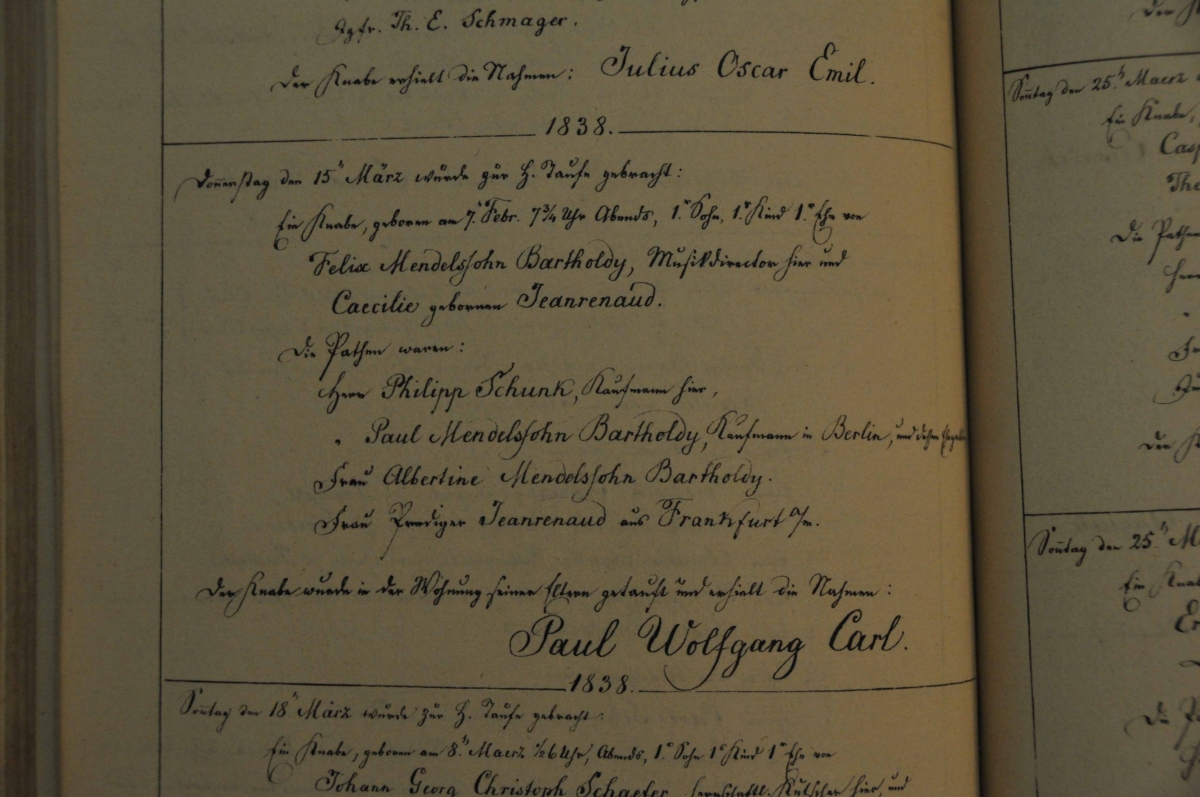 Jgfr. Th. E. Schmager.
Der Knabe erhielt die Nahmen: Julius Oscar Emil.
1838.
Donnerstag den 15n März wurde zur H. Taufe gebracht:
Ein Knabe, geboren am 7n Febr. 7¾ Uhr Abends, 1r Sohn, 1s Kind 1r Ehe von
Felix Mendelssohn Bartholdy, Musikdirector hier und
Caecilie geborenen Jeanrenaud.
Die Pathen waren:
Herr Philipp Schunk, Kaufmann hier,
" Paul Mendelssohn Bartholdy, Kaufmann in Berlin, und dessen
Frau Albertine Mendelssohn Bartholdy.
Frau Prediger Jeanrenaud aus Frankfurt a/m.
Der Knabe wurde in der Wohnung seiner Eltern getauft und erhielt die Nahmen:
Paul Wolfgang Carl.
1838.
Sonntag den 18n März wurde zur H. Taufe gebracht:
Ein Knabe, geboren am 8n Maerz ½6 Uhr, Abends, 1r Sohn 1s Kind 1r Ehe von
Johann Georg Christoph Schaefer, Kutscher hier, und
Der
Sonntag den 25n Maerz
Ein Knabe,
Casp
The
Die Pathen
Herr
"
Fr
Der K
Sonntag den 25n M
Ein Knab
Er
Die P